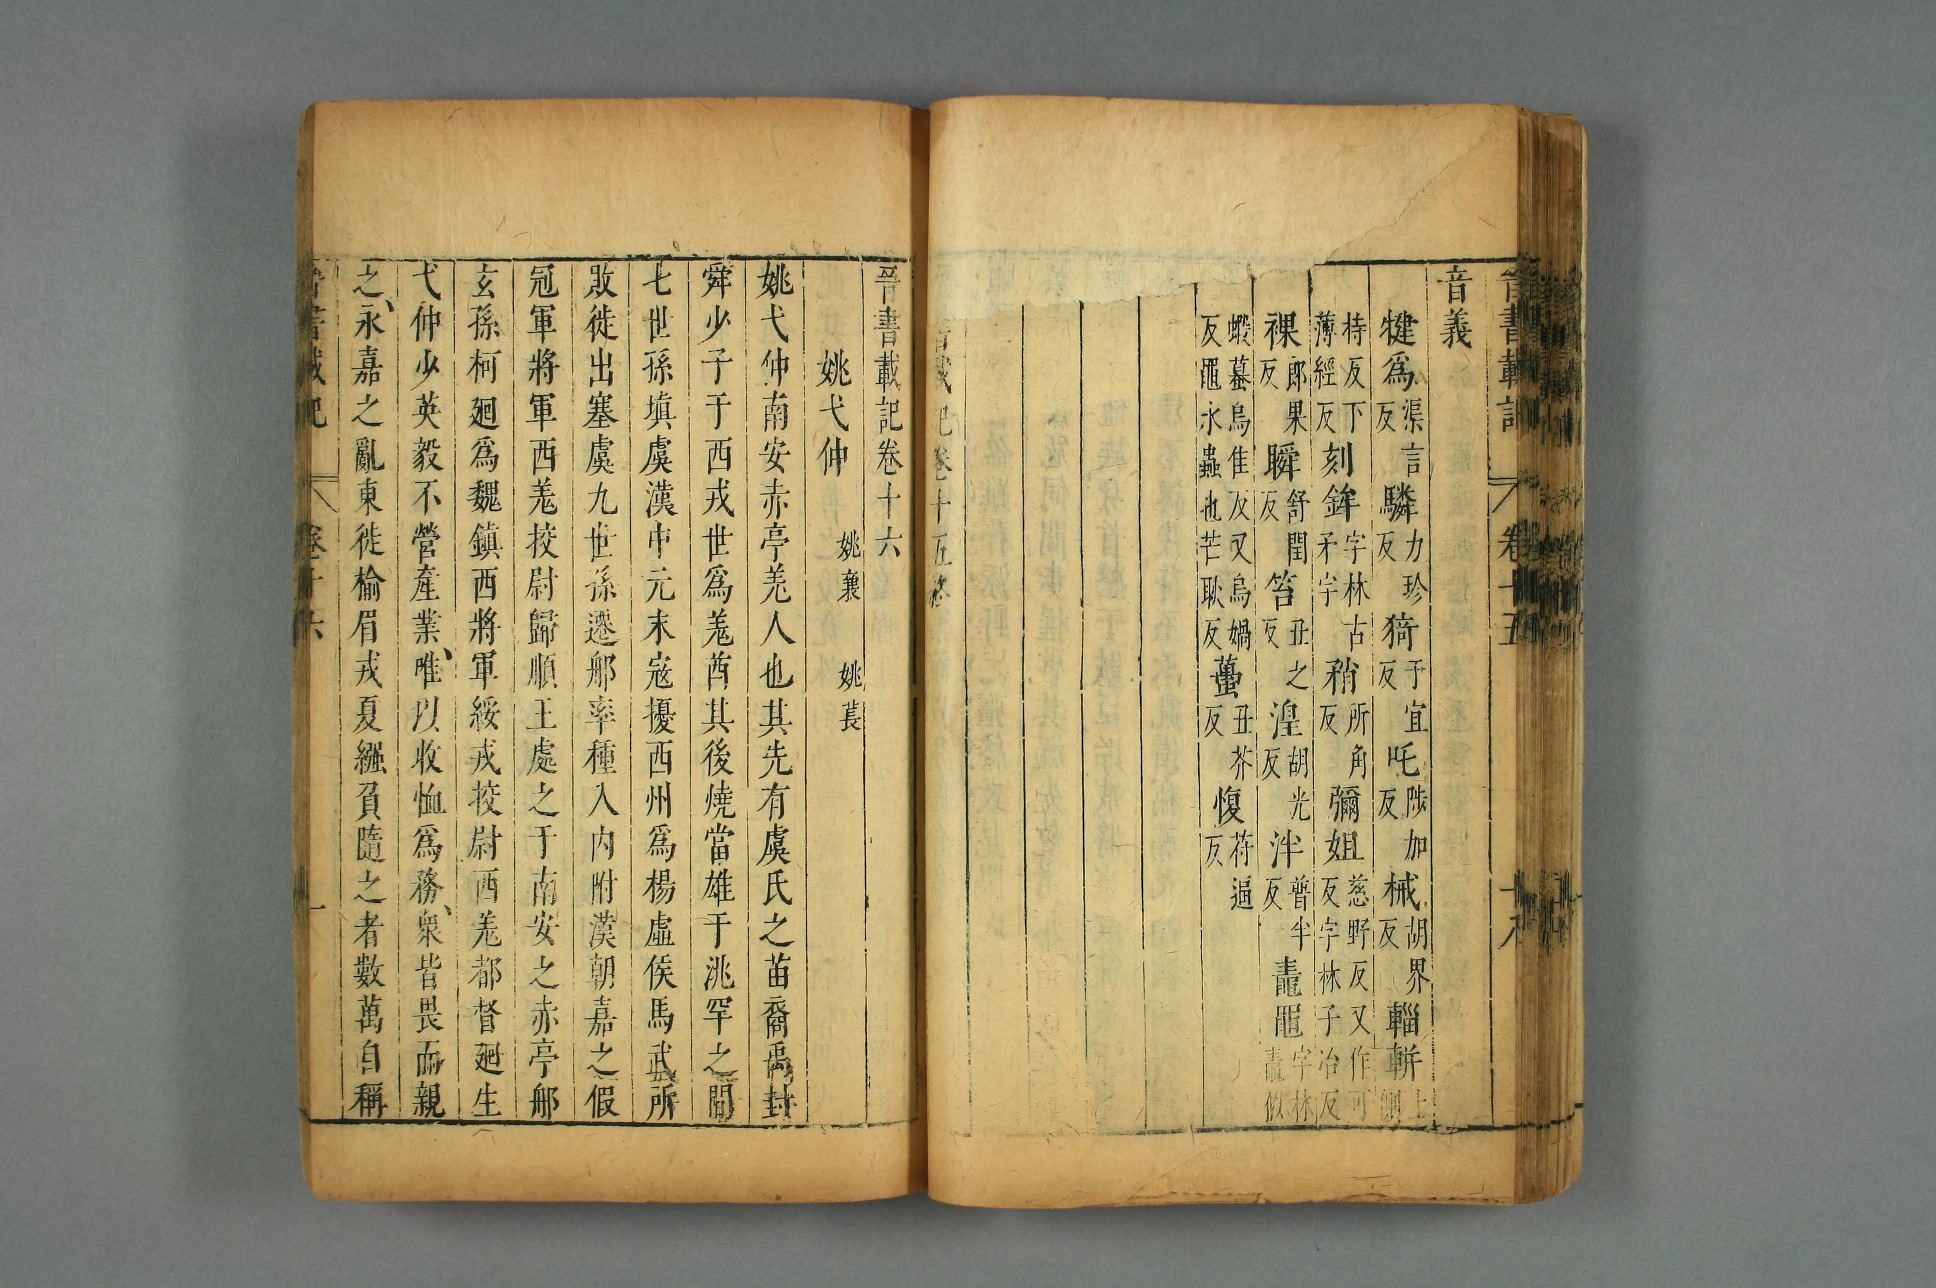 晉書載記 卷十五 十八
音義
犍爲渠言反驎力珍反猗于宜反吒陟加反械胡界反輜軿上
持反下薄經反刻鉾字林古矛字矟所角反彌姐慈野反又作可反字林子冶反
裸郎果反瞬舒閏反笞丑之反湟胡光反泮普半反鼃黽字林鼃似
蝦蟇烏佳反又烏媧反黽水蟲也芒耿反蠆丑芥反愎苻逼反
晉書載記卷十六
姚弋仲 姚襄 姚萇
姚弋仲南安赤亭羌人也其先有虞氏之苗裔禹封
舜少子于西戎世爲羌酋其後燒當雄于洮罕之間
七世孫填虞漢中元末寇擾西州爲楊虛侯馬武所
敗徙出塞虞九世孫遷那率種入內附漢朝嘉之假
冠軍將軍西羌校尉歸順王處之于南安之赤亭那
玄孫柯廻爲魏鎮西將軍綏戎校尉西羌都督廻生
弋仲少英毅不營產業、唯以收恤爲務、衆皆畏而親
之、永嘉之亂東徙榆眉戎夏繈負隨之者數萬自稱
晉書載記 卷十六 一